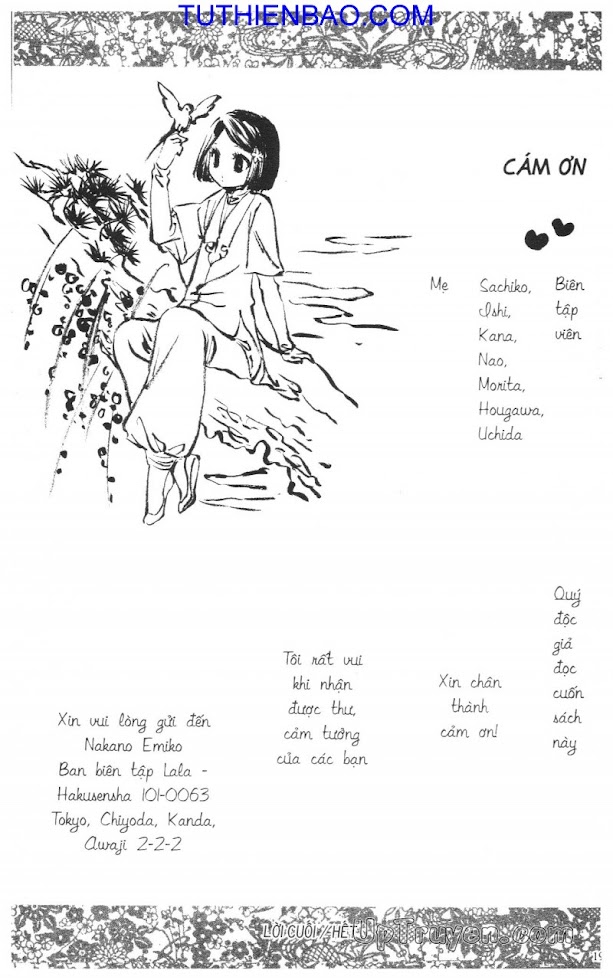 TUTHIENBAO.COM
CÁM ƠN
Biên
tập
viên
Sachiko,
Ishi,
Kana,
Nao,
Morita,
Hougawa,
Uchida
Mẹ
Quý
độc
giả
đọc
cuốn
sách
này
Xin chân
thành
cảm ơn!
Tôi rất vui
khi nhận
được thư,
cảm tưởng
của các bạn
Xin vui lòng gửi đến
Nakano Emiko
Ban biên tập Lala -
Hakusensha 101-0063
Tokyo, Chiyoda, Kanda,
Awaji 2-2-2
LỜI CUỐI / HẾT
UpTruyen.com